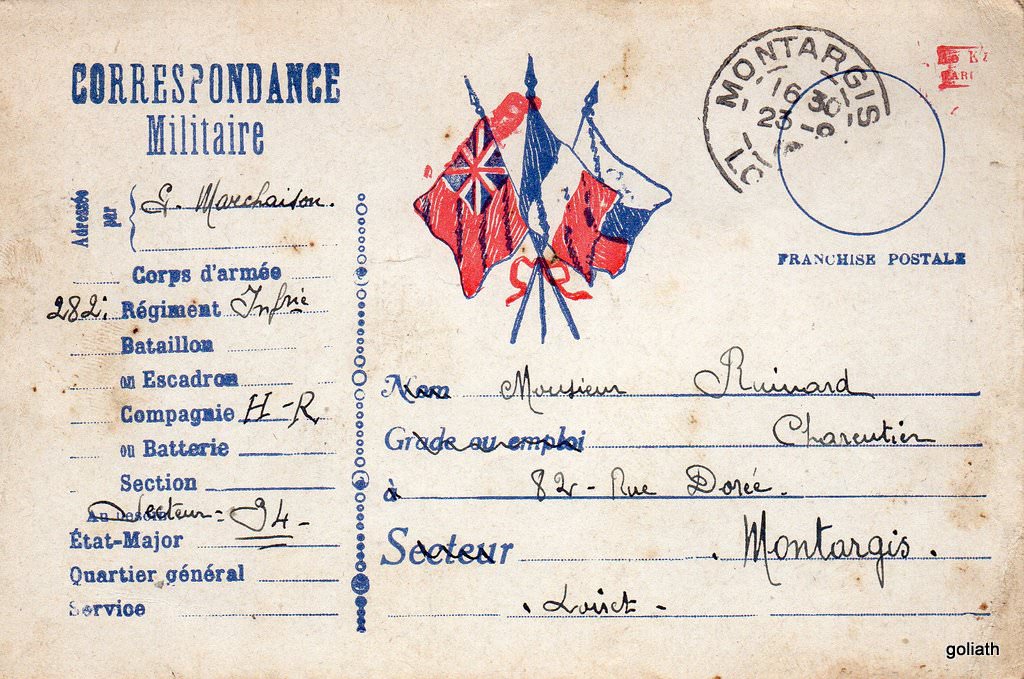 CORRESPONDANCE
Militaire
Adressée
par
G. Marchaison.
Corps d'armée
282e Régiment Infrie
Bataillon
ou Escadron
Compagnie H-R
ou Batterie
Section
Au besoin
Secteur = 94 -
État-Major
Quartier général
Service
MONTARGIS
16 30
23 - 9
FRANCHISE POSTALE
Nom Monsieur Ruinard
Grade ou emploi Charcutier
à 82 - Rue Dorée.
Secteur . Montargis .
. Loiret -
goliath